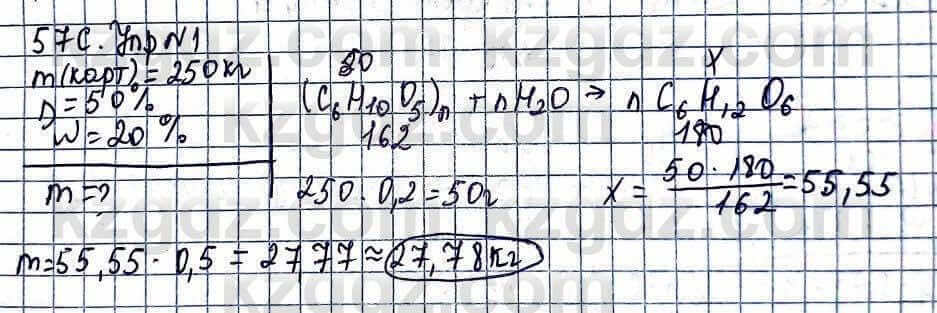 57с. Упр №1
m(карт)=250кг
D=50%
W=20%
m=?
50 x
(C6H10O5)n + nH2O → n C6H12O6
162 180
250·0,2=50г
x = 50·180 / 162 = 55,55
m=55,55·0,5=27,77≈27,78кг
kzgdz.com